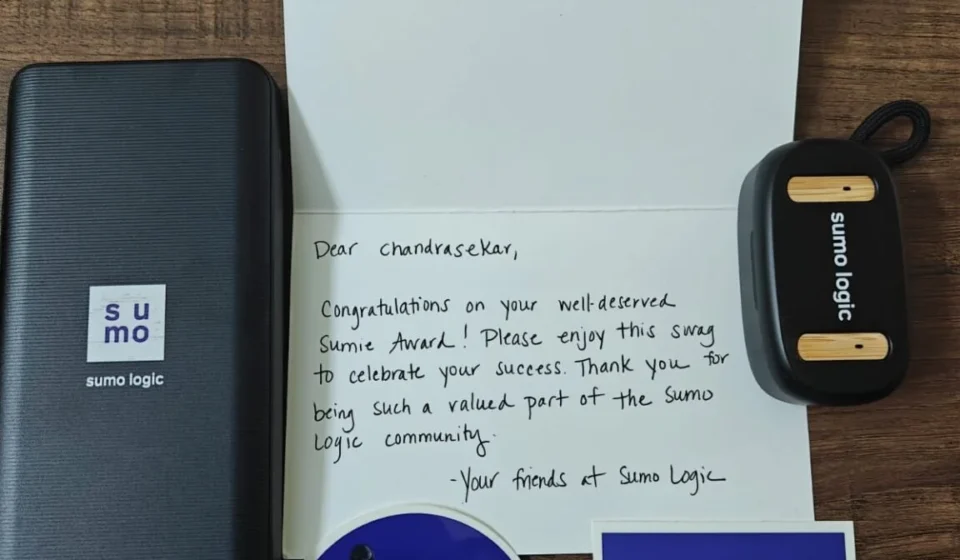 su
mo
sumo logic
Dear Chandrasekar,
Congratulations on your well-deserved
Sumie Award! Please enjoy this swag
to celebrate your success. Thank you for
being such a valued part of the Sumo
Logic community.
-Your friends at Sumo Logic
sumo logic